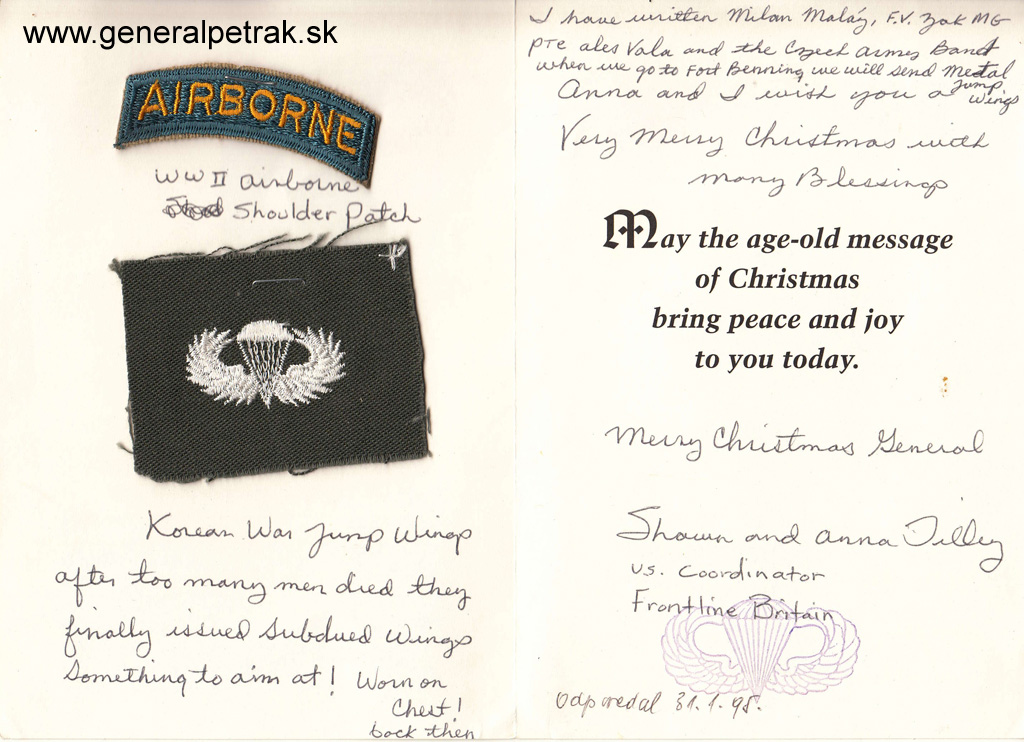 www.generalpetrak.sk
AIRBORNE
WW II airborne
Shoulder Patch
Korean War Jump Wings
after too many men died they
finally issued subdued wings
Something to aim at! Worn on
Chest!
back then
I have written Milan Maláy, F.V. Zak MG
Pte ales Vala and the Czech army Band
when we go to Fort Benning we will send Metal
Jump
Wings
Anna and I wish you a
Very Merry Christmas with
many Blessings
May the age-old message
of Christmas
bring peace and joy
to you today.
Merry Christmas General
Shawn and Anna Tilley
US. Coordinator
Frontline Britain
Odpovedal 31.1.95.